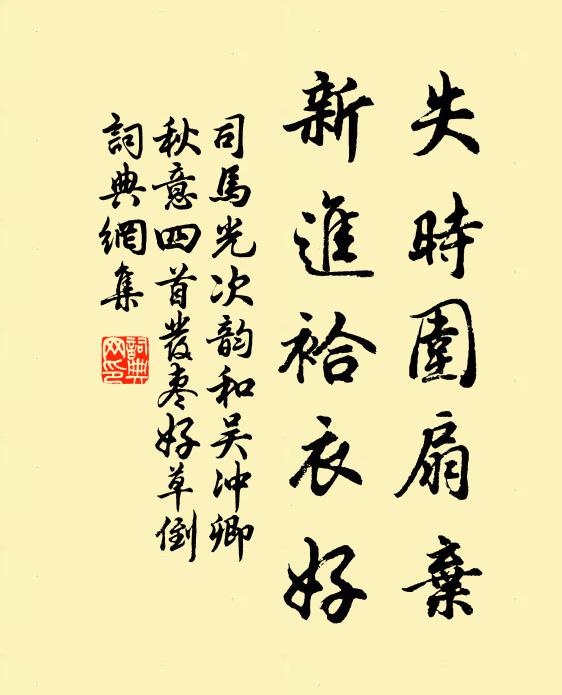 失時團扇棄
新進袷衣好
司馬光次韵和吴冲卿
秋意四首發枣好草倒
詞典網集
詞典
网印